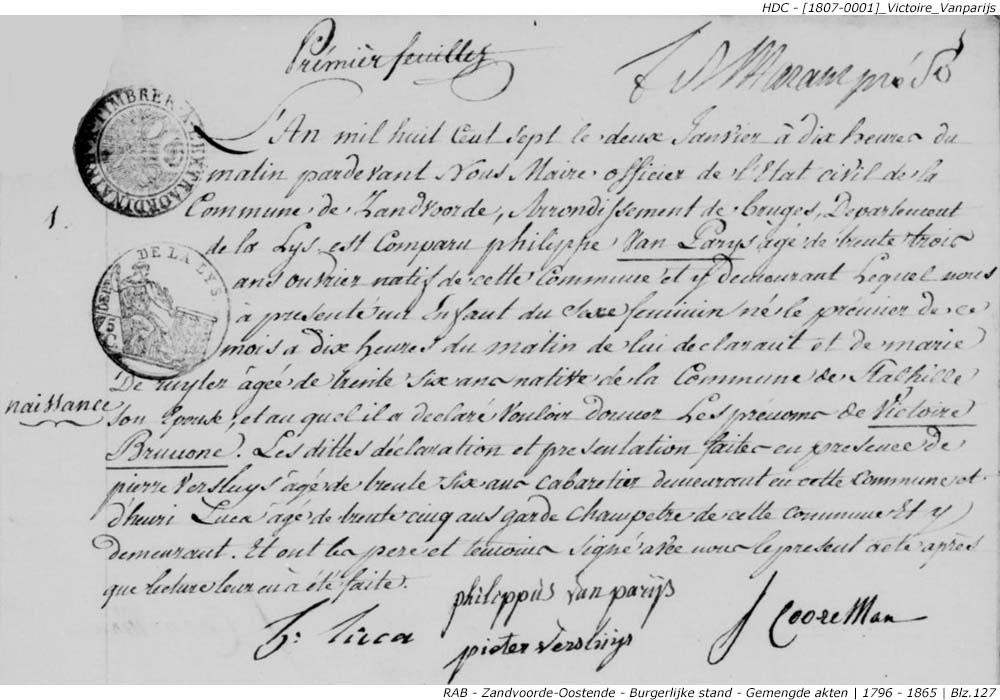 HDC - [1807-0001]_Victoire_Vanparijs
Prémièr feuillet
L'An mil huit Cent sept le deux Janvier à dix heures du
matin pardevant Nous Maire officier de l'Etat civil de la
Commune de Zandvoorde, Arrondissement de Bruges, Departement
de la Lys est Comparu philippe Van Parys agé de trente trois
ans ouvrier natif de cette Commune et y demeurant Lequel nous
à presenté un Enfant du Sexe feminin né le prémier de ce
mois a dix heures du matin de lui declarant et de marie
De ruyter âgée de trente Six ans native de la Commune de Stalhille
Son Epouse, et au quel il a declaré Vouloir donner Les prénoms de Victoire
Brunone. Les dittes déclaration et presentation faites en presence de
pierre Versluys âgé de trente Six ans cabaretier demeurant en cette Commune et
d'henri Luca âgé de trente cinq ans garde champetre de cette commune Et y
demeurant. Et ont les pere et temoins signé avec nous le present acte après
que lecture leur en à été faite.
1.
naissance
TIMBRE EXTRAORDINAIRE
DEPT DE LA LYS
philippus van parijs
h: Luca
pieter versluijs
J CooreMan
RAB - Zandvoorde-Oostende - Burgerlijke stand - Gemengde akten | 1796 - 1865 | Blz.127